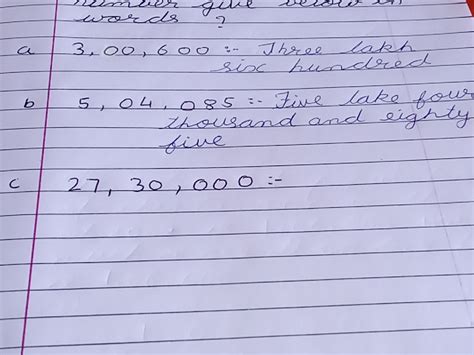 number give below in
words ?
a 3,00,600 :- Three lakh
six hundred
b 5,04,085 :- Five lake four
thousand and eighty
five
c 27,30,000 :-